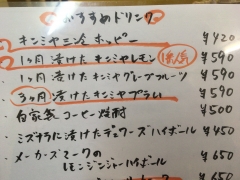 おすすめドリンク
キンミヤ三冷ホッピー ¥420
1ヶ月漬けたキンミヤレモン 1番人気 ¥590
1ヶ月漬けたキンミヤグレープフルーツ ¥590
3ヶ月漬けたキンミヤプラム ¥590
自家製コーヒー焼酎 ¥500
ミズナラに漬けたデュワーズハイボール ¥450
メーカーズマークの
レモンジンジャーハイボール ¥650
¥650